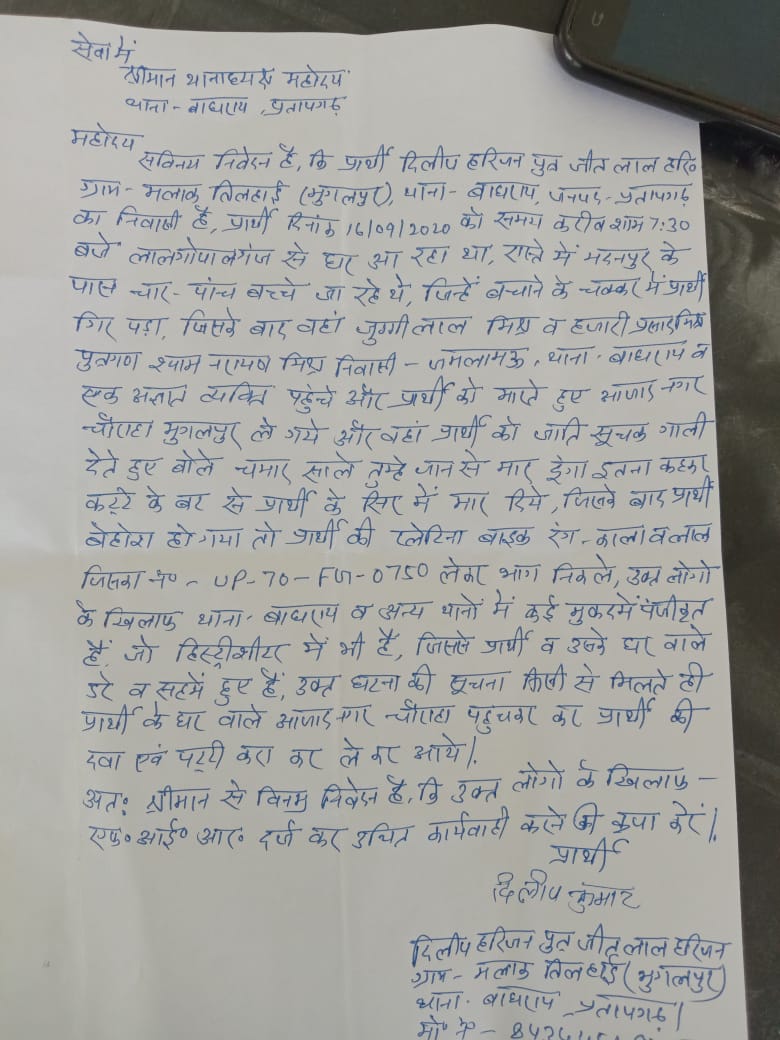 सेवा में
श्रीमान थानाध्यक्ष महोदय
थाना - बाघराय, प्रतापगढ़
महोदय
सविनय निवेदन है, कि प्रार्थी दिलीप हरिजन पुत्र जीत लाल हरि०
ग्राम - मलाक तिलहाई (मुगलपुर), थाना - बाघराय, जनपद - प्रतापगढ़
का निवासी है, प्रार्थी दिनांक 16/09/2020 को समय करीब शाम 7:30
बजे लालगोपालगंज से घर आ रहा था, रास्ते में मदनपुर के
पास चार - पांच बच्चे जा रहे थे, जिन्हें बचाने के चक्कर में प्रार्थी
गिर पड़ा, जिसके बाद वहां जुग्गीलाल मिश्र व हजारी प्रसाद मिश्र
पुत्रगण श्याम नरायण मिश्र निवासी - जमलामऊ, थाना - बाघराय व
एक अज्ञात व्यक्ति पहुंचे और प्रार्थी को मारते हुए आजाद नगर
चौराहा मुगलपुर ले गये और वहां प्रार्थी को जाति सूचक गाली
देते हुए बोले चमार साले तुम्हे जान से मार दूंगा इतना कहकर
कट्टे के बट से प्रार्थी के सिर में मार दिये, जिसके बाद प्रार्थी
बेहोश हो गया तो प्रार्थी की प्लेटिना बाइक रंग - काला व लाल
जिसका नं० - UP-70-FG-0750 लेकर भाग निकले, उक्त लोगो
के खिलाफ थाना - बाघराय व अन्य थानों में कई मुकदमें पंजीकृत
हैं, जो हिस्ट्रीशीटर में भी है, जिससे प्रार्थी व उसके घर वाले
डरे व सहमें हुए हैं, उक्त घटना की सूचना किसी से मिलते ही
प्रार्थी के घर वाले आजाद नगर चौराहा पहुचकर कर प्रार्थी की
दवा एवं पट्टी करा कर ले कर आये।
अतः श्रीमान से विनम्र निवेदन है, कि उक्त लोगो के खिलाफ -
एफ० आई० आर० दर्ज कर उचित कार्यवाही करने की कृपा करें।
प्रार्थी
दिलीप कुमार
दिलीप हरिजन पुत्र जीत लाल हरिजन
ग्राम - मलाक तिलहाई (मुगलपुर)
थाना - बाघराय, प्रतापगढ़।
मो० नं० -